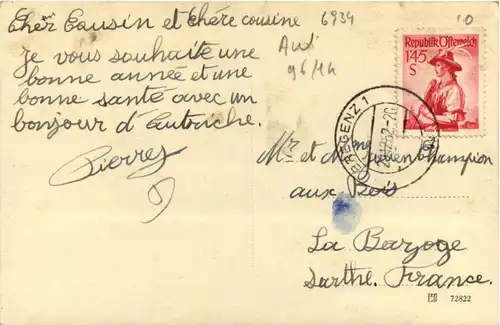 Cher Cousin et chère cousine
je vous souhaite une
bonne année et une
bonne santé avec un
bonjour d'Autriche.
Pierrey
6934
10
Republik Österreich
1'45
S
BREGENZ 1
Mr et Mme Champion
aux Bois
La Bazoge
Sarthe. France.
72822